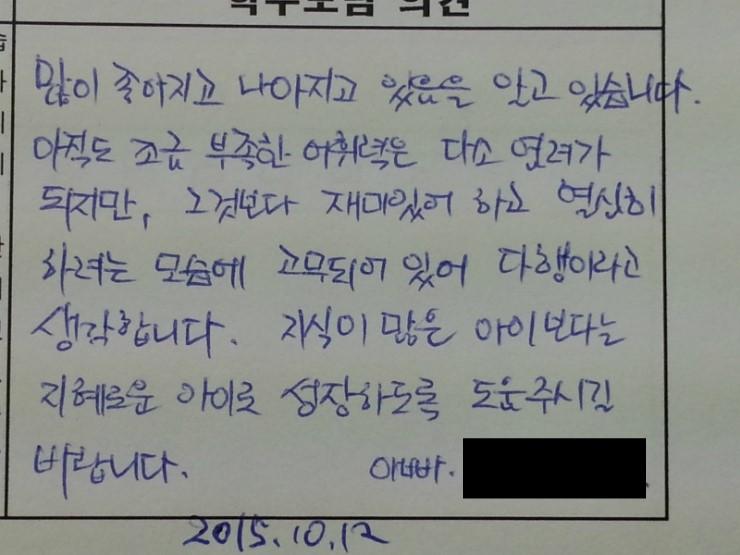 학부모님 의견
많이 좋아지고 나아지고 있음을 알고 있습니다.
아직도 조금 부족한 어휘력은 다소 염려가
되지만, 그것보다 재미있어 하고 열심히
하려는 모습에 고무되어 있어 다행이라고
생각합니다. 지식이 많은 아이보다는
지혜로운 아이로 성장하도록 도움주시길
바랍니다. 아빠.
2015.10.12